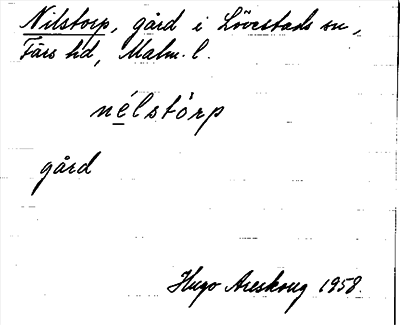 Nilstorp, gård i Lövestads sn,
Färs hd, Malm. l.
nélstòrp
gård
Hugo Areskoug 1958.